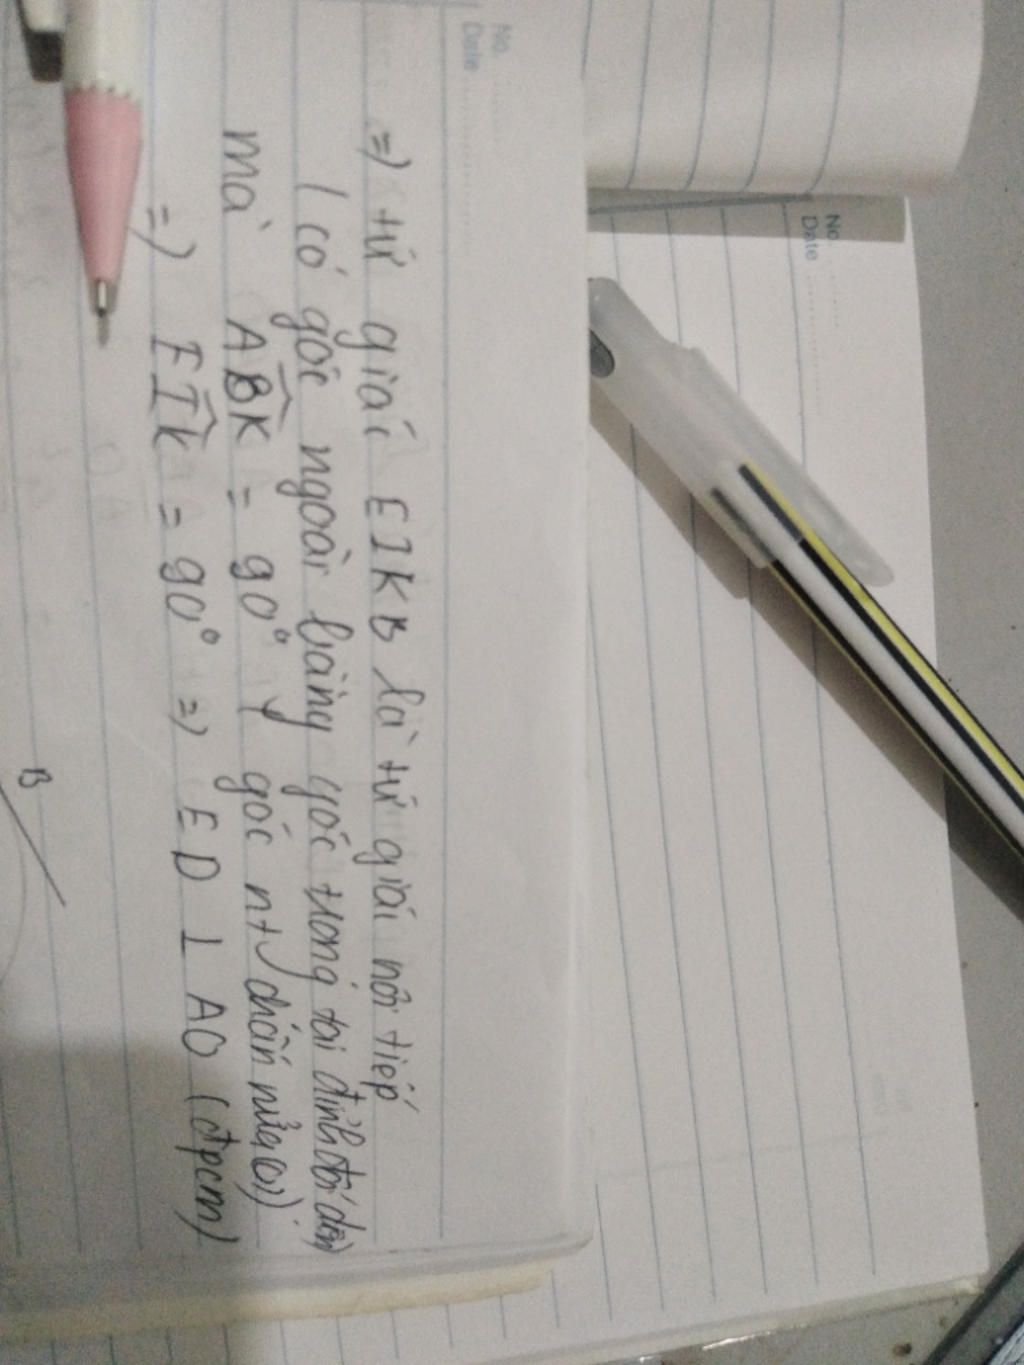 No.
Date
=) tứ giác EIKB là tứ giác nội tiếp
( có góc ngoài bằng góc trong tại đỉnh đối diện)
mà ABK = 90° ( góc nt chắn nửa (O))
=) EIK = 90° =) ED ⊥ AO (đpcm)
B
No.
Date